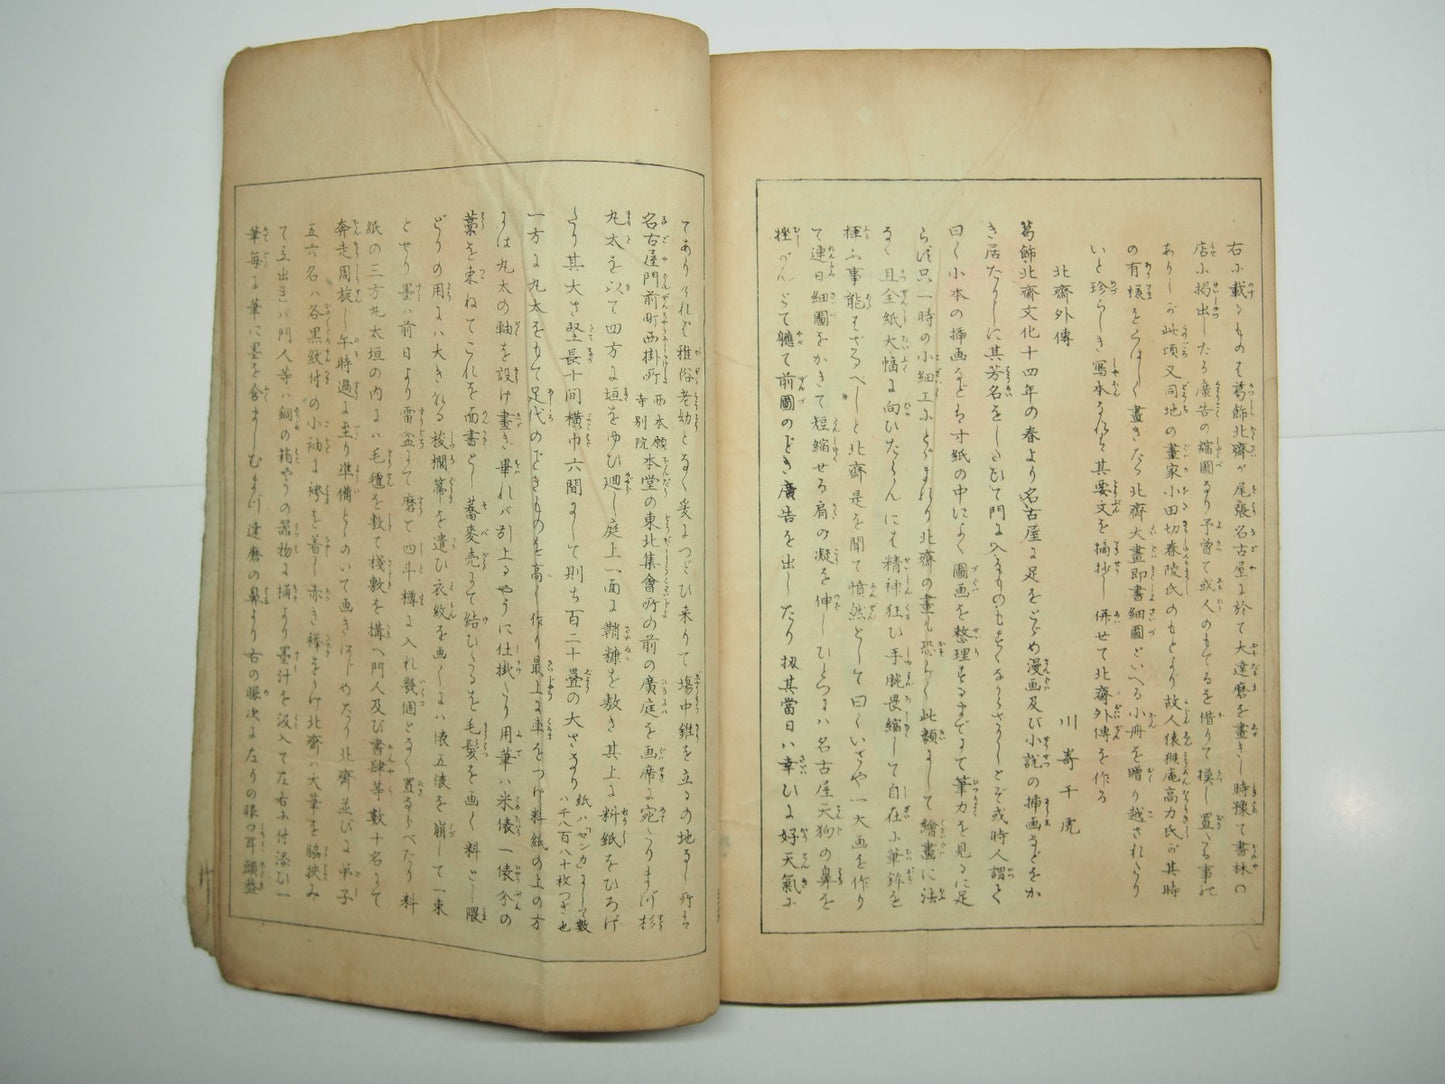 右に載るものは葛飾北齋が尾張名古屋に於て大達磨を畫きし時豫て書林の
店に掲出したり廣告の縮圖なり予曾て或人のもてるを借りて模し置きたる事
ありしが此頃又同地の畫家小田切春陵氏のもとより故人猿猴庵高力氏が其時
の有様をくはしく畫きたる北齋大畫即書細圖といへる小冊を贈り越されたり
いと珍らしき寫本なれば其要文を摘抄し併せて北齋外傳を作る
北齋外傳
川嵜千虎
葛飾北齋文化十四年の春より名古屋に足をとどめ漫画及び小説の挿画などをか
き居たりしに其芳名をしたひて門に入るものもすくなからざりしとぞ或時人謂らく
曰く小本の挿画などは寸紙の中によく圖画を整理するまでにて筆力を見るに足
らず只一時の小細工にとどまれり北齋の畫も恐らく此類にして繪畫に法
なく且全紙大幅に向ひたらんにも精神狂ひ手腕畏縮して自在に筆鋒を
揮ふ事能はざるべしと北齋是を聞て憤然として曰くいざや一大画を作り
て連日細圖をかきて短縮せる肩の凝を伸しひとつは名古屋天狗の鼻を
挫がんとて軈て前圖のごとき廣告を出したり扨其當日は幸ひに好天氣に
てありければ雅俗老幼となく爰につどひ来りて場中錐を立るの地なし所は
名古屋門前町西掛所 西本願寺別院 本堂の東北集會所の前の廣庭を画席に宛たりまづ杉
丸太を以て四方に垣をゆひ廻し庭上一面に鞘糠を敷き其上に料紙をひろげ
たり其大さ竪長十間横巾六間にして則ち百二十疊の大さなり 紙ハ「センカ」にして數ハ千八百八十枚つぎ也
一方に丸太をもて足代のごときものを高く作り最上に車をつけ料紙の上の方
には丸太の軸を設け畫き畢れバ引上るやうに仕掛たり用筆ハ米俵一俵分の
藁を束ねてこれを面書と 蕎麥売にて結ひたるを毛髪を画く料とし隈
どりの用には大きなる棕櫚箒を遣ひ衣紋を画くには俵五俵を崩して一束
とせり墨ハ前日より雷盆にて磨て四斗樽に入れ幾個となく置ならべたり料
紙の三方丸太垣の内にハ毛氈を敷て棧敷を構へ門人及び書肆等數十名にて
奔走周旋し午時過に至り準備ととのいて画きはじめたり北齋並びに弟子
五六名ハ各黒紋付の小袖に袴を着し赤き襷をかけ北齋ハ大筆を脇挾み
て立出きバ門人等ハ銅の箱やうの器物に桶より墨汁を汲入て左右に付添ひ一
筆毎に筆に墨を含ましむまづ達磨の鼻より右の眼次に左りの眼口耳頭蓋